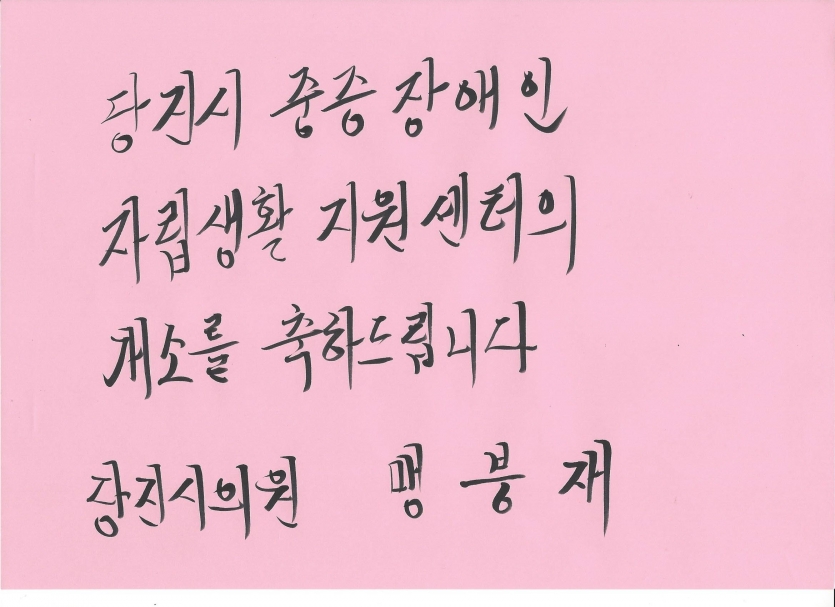 당진시 중증장애인
자립생활 지원센터의
개소를 축하드립니다
당진시의원 맹붕재